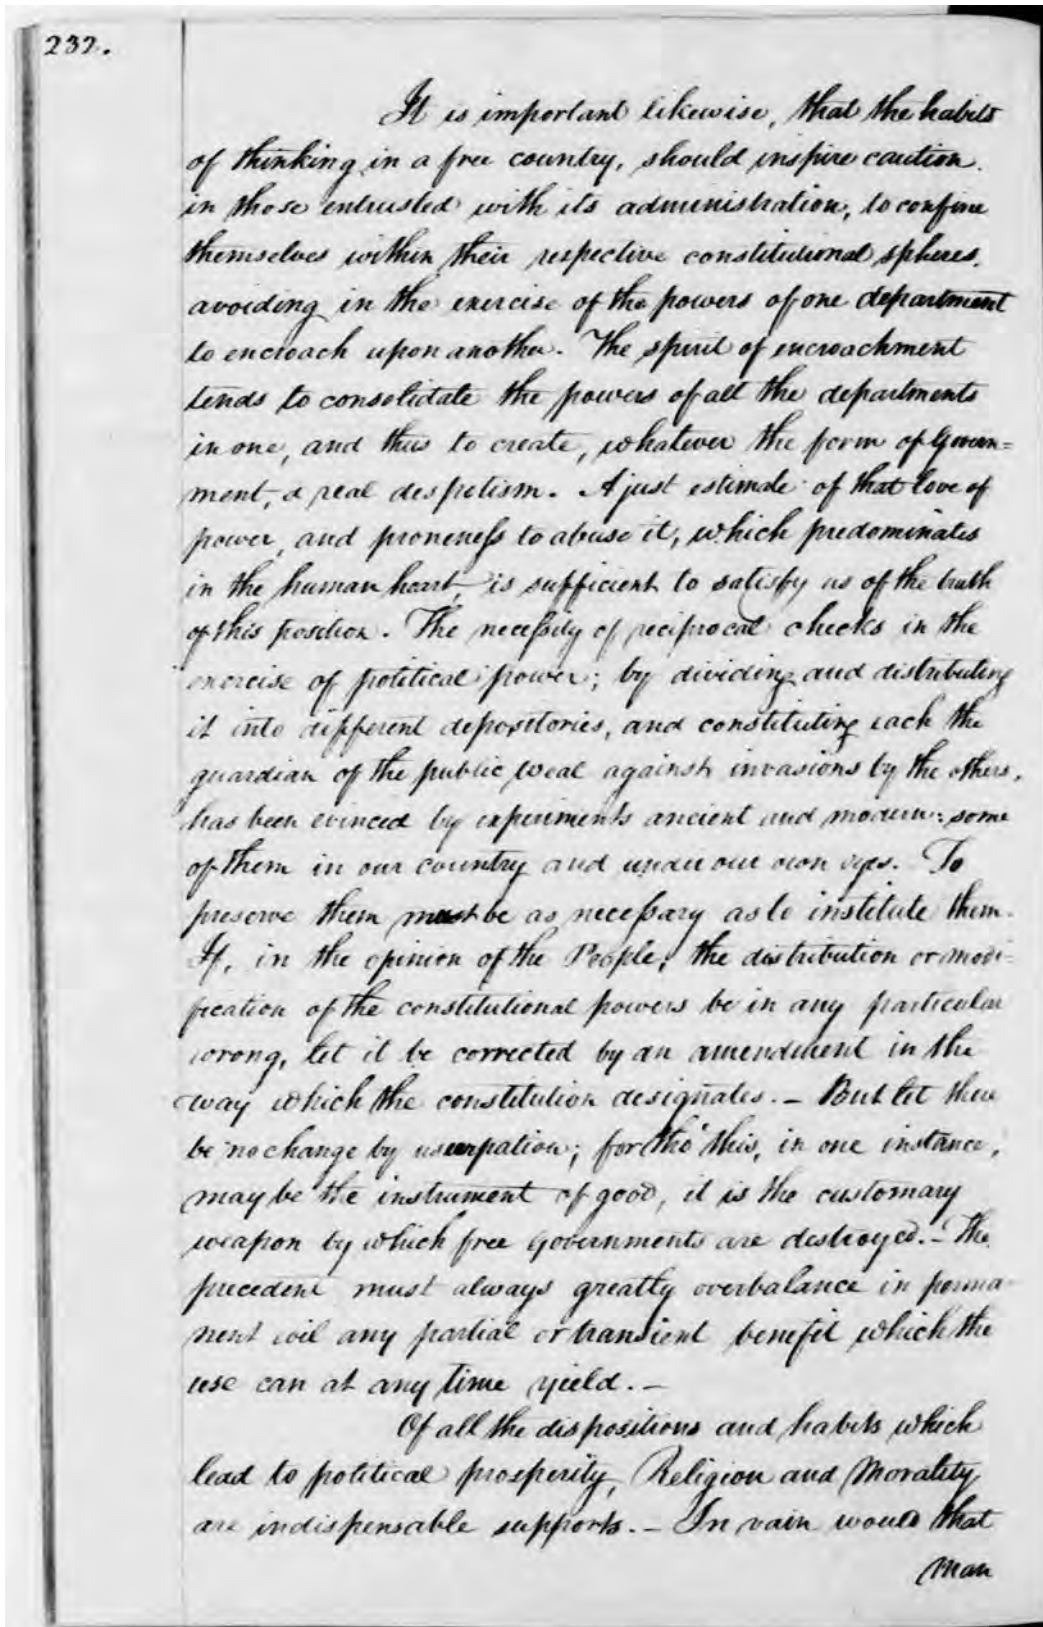 232.
It is important likewise, that the habits
of thinking in a free country, should inspire caution.
in those entrusted with its administration, to confine
themselves within their respective constitutional spheres,
avoiding in the exercise of the powers of one department
to encroach upon another. The spirit of encroachment
tends to consolidate the powers of all the departments
in one, and thus to create, whatever the form of Govern=
ment, a real despotism. A just estimate of that love of
power, and proneneſs to abuse it, which predominates
in the human heart, is sufficient to satisfy us of the truth
of this position. The neceſsity of reciprocal checks in the
exercise of political power; by dividing and distributing
it into different depositories, and constituting each the
guardian of the public weal against invasions by the others,
has been evinced by experiments ancient and modern: some
of them in our country and under our own eyes. To
preserve them must be as neceſsary as to institute them.
If, in the opinion of the People, the distribution or modi-
fication of the constitutional powers be in any particular
wrong, let it be corrected by an amendment in the
way which the constitution designates. – But let there
be no change by usurpation; for tho' this, in one instance,
may be the instrument of good, it is the customary
weapon by which free governments are destroyed. – The
precedent must always greatly overbalance in perma-
nent evil any partial or transient benefit which the
use can at any time yield. –
Of all the dispositions and habits which
lead to political prosperity, Religion and Morality
are indispensable supports. – In vain would that
man